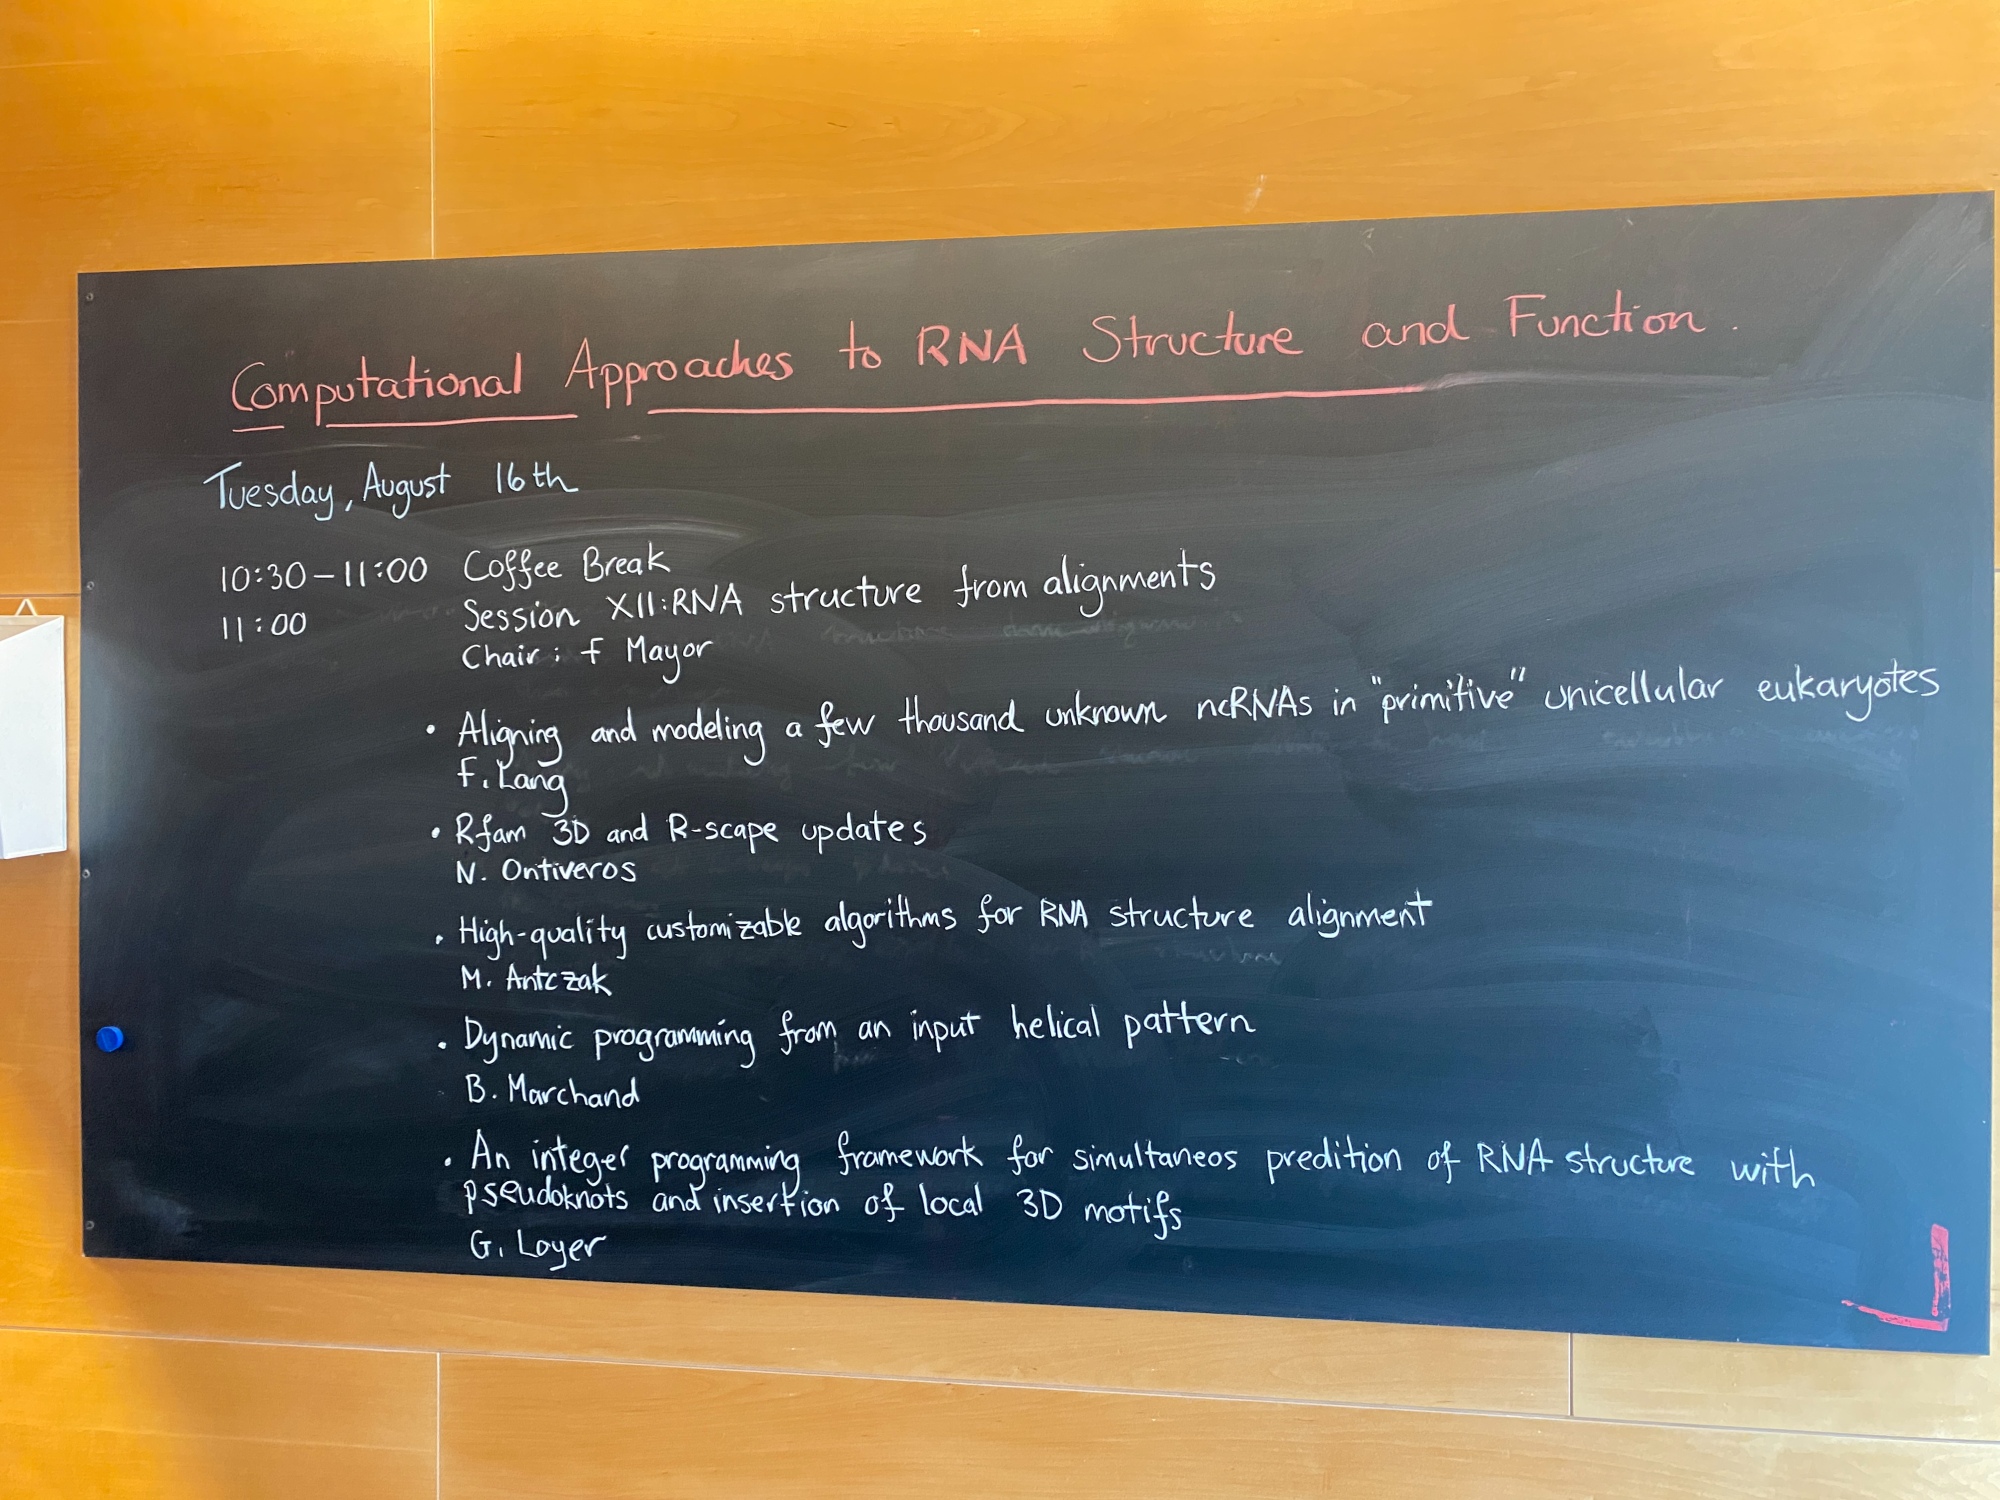 Computational Approaches to RNA Structure and Function.
Tuesday, August 16th
10:30-11:00 Coffee Break
11:00 Session XII: RNA structure from alignments
Chair: F Mayor
• Aligning and modeling a few thousand unknown ncRNAs in "primitive" unicellular eukaryotes
F. Lang
• Rfam 3D and R-scape updates
N. Ontiveros
• High-quality customizable algorithms for RNA structure alignment
M. Antczak
• Dynamic programming from an input helical pattern
B. Marchand
• An integer programming framework for simultaneos predition of RNA structure with
pseudoknots and insertion of local 3D motifs
G. Loyer